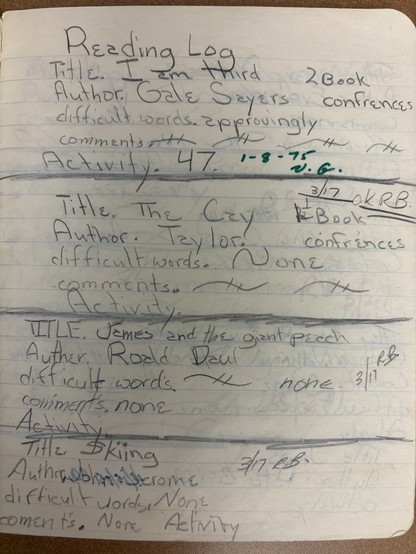 Reading Log
Title. I am third
2 Book
Author. Gale Sayers
confrences
difficult words. approvingly
comments
Activity. 47.
1-8-75
N. G.
3/17 OK R.B.
Title. The Cay
Book
Author. Taylor.
confrences
difficult words. None
comments.
Activity.
TITLE. James and the giant peach
Author. Roald Daul
R.B.
3/17
difficult words. none.
comments. none
Activity
Title. Skiing
3/17 R.B.
Author
difficult words. None
coments. None Activity